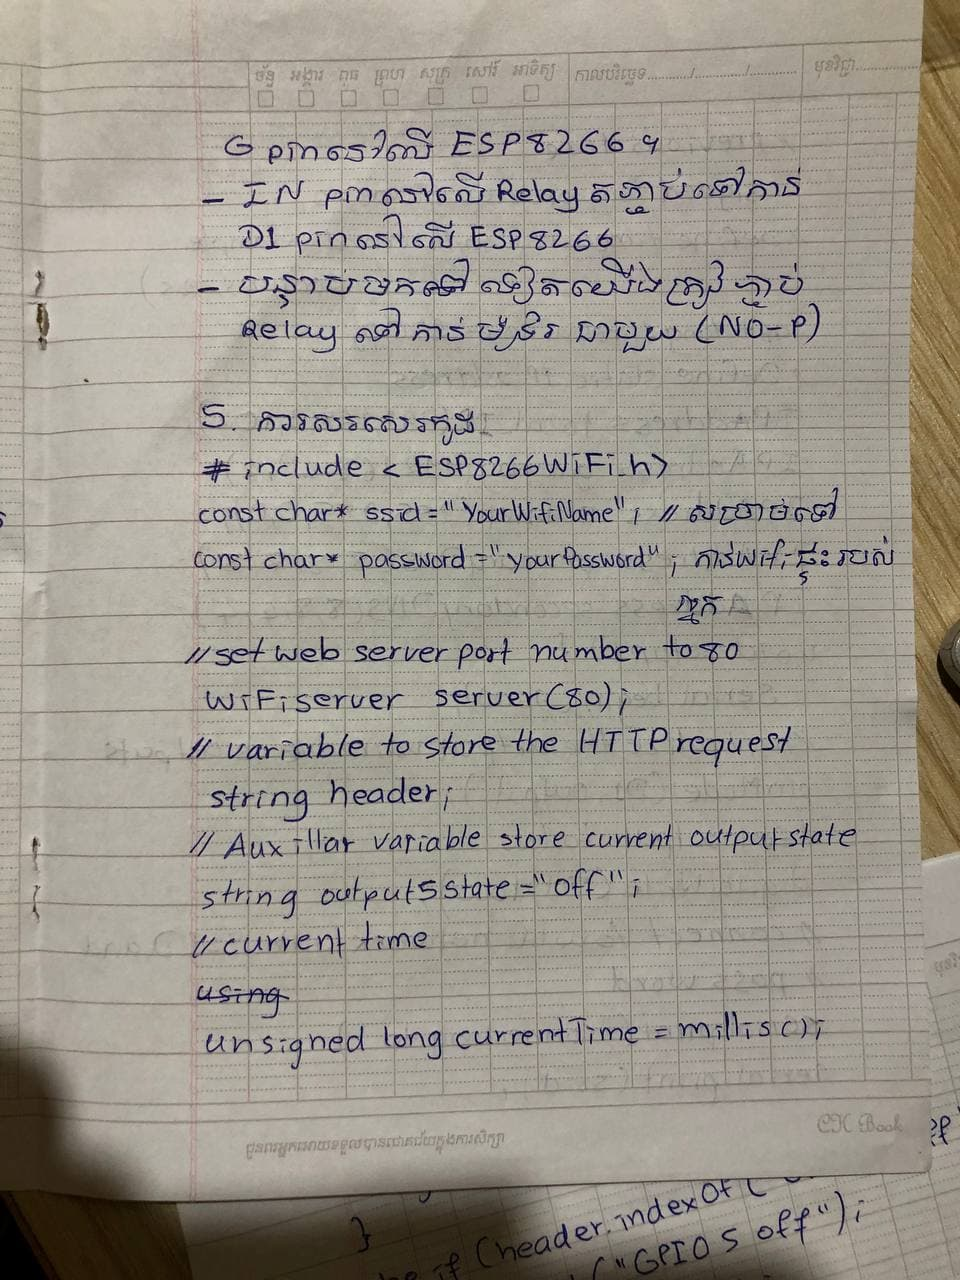 ច័ន្ទ អង្គារ ពុធ ព្រហ សុក្រ សៅរ៍ អាទិត្យ កាលបរិច្ឆេទ............/............/............ មុខវិជ្ជា
G pin នៅលើ ESP8266 ។
- IN pin នៅលើ Relay តភ្ជាប់ទៅកាន់
D1 pin នៅលើ ESP8266
- បន្ទាប់មកទៅ ទៀតយើងត្រូវភ្ជាប់
Relay ទៅកាន់ម៉ូទ័រ ជាមួយ (NO-P)
5. ការសរសេរកូដ
# include < ESP8266WiFi.h>
const char* ssid="YourWifiName"; // សម្រាប់ទៅ
const char* password ="yourPassword"; កាន់wifiផ្ទះរបស់
អ្នក
//set web server port number to 80
WiFiserver server(80);
// variable to store the HTTP request
string header;
// Auxillar variable store current output state
string output5state="off";
//current time
using
unsigned long currentTime = millis();
ជូនពរអ្នកអោយទទួលបានជោគជ័យក្នុងការសិក្សា CK Book
}
if (header.indexOf(
("GPIO 5 off");